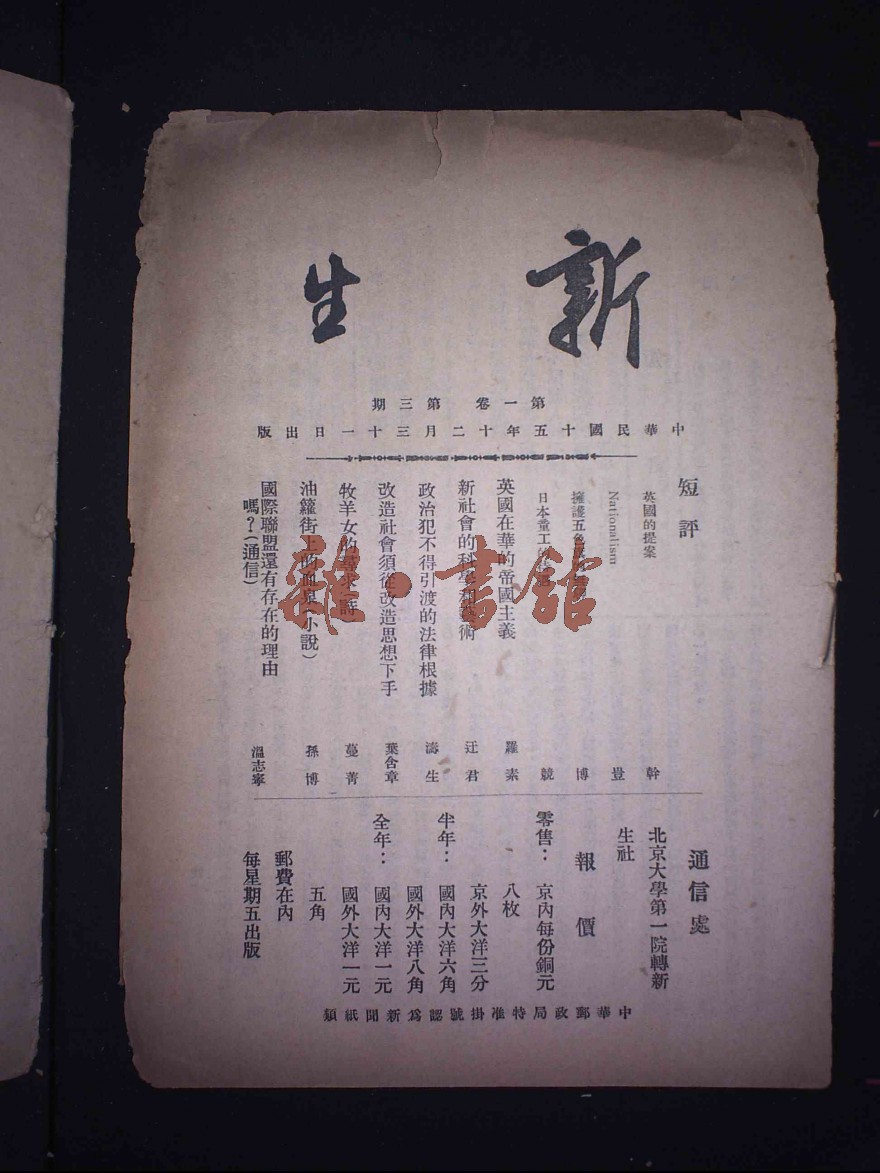 新生
第一卷 第三期
中華民國十五年十二月三十一日出版
短評
英國的提案
Nationalism
擁護五色
日本童工
英國在華的帝國主義
新社會的科學和藝術
政治犯不得引渡的法律根據
改造社會須從改造思想下手
牧羊女的
油籮街上的血泉(小說)
國際聯盟還有存在的理由
嗎?(通信)
幹
豈
博
競
羅素
迂君
濤生
葉含章
蔓菁
孫博
溫志寧
通信處
北京大學第一院轉新
生社
報價
零售: 京內每份銅元
八枚
京外大洋三分
半年: 國內大洋六角
國外大洋八角
全年: 國內大洋一元
國外大洋一元
五角
郵費在內
每星期五出版
中華郵政局特准掛號認爲新聞紙類
雜·書館